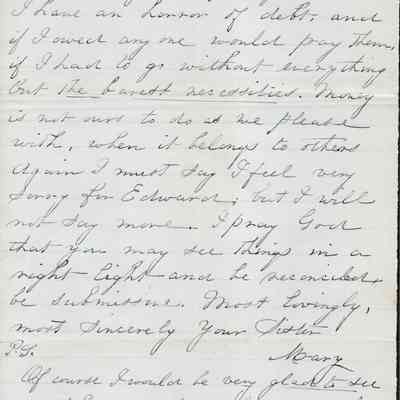 I have an horror of debt, and
if I owed any one would pay them,
if I had to go without everything
but the barest necessities. Money
is not ours to do as we please
with, when it belongs to others
Again I must say I feel very
sorry for Edward; but I will
not say more. I pray God
that you may see things in a
right light and be reconciled &
be submissive. Most lovingly,
most sincerely Your Sister
Mary
P.S.
Of course I would be very glad to see